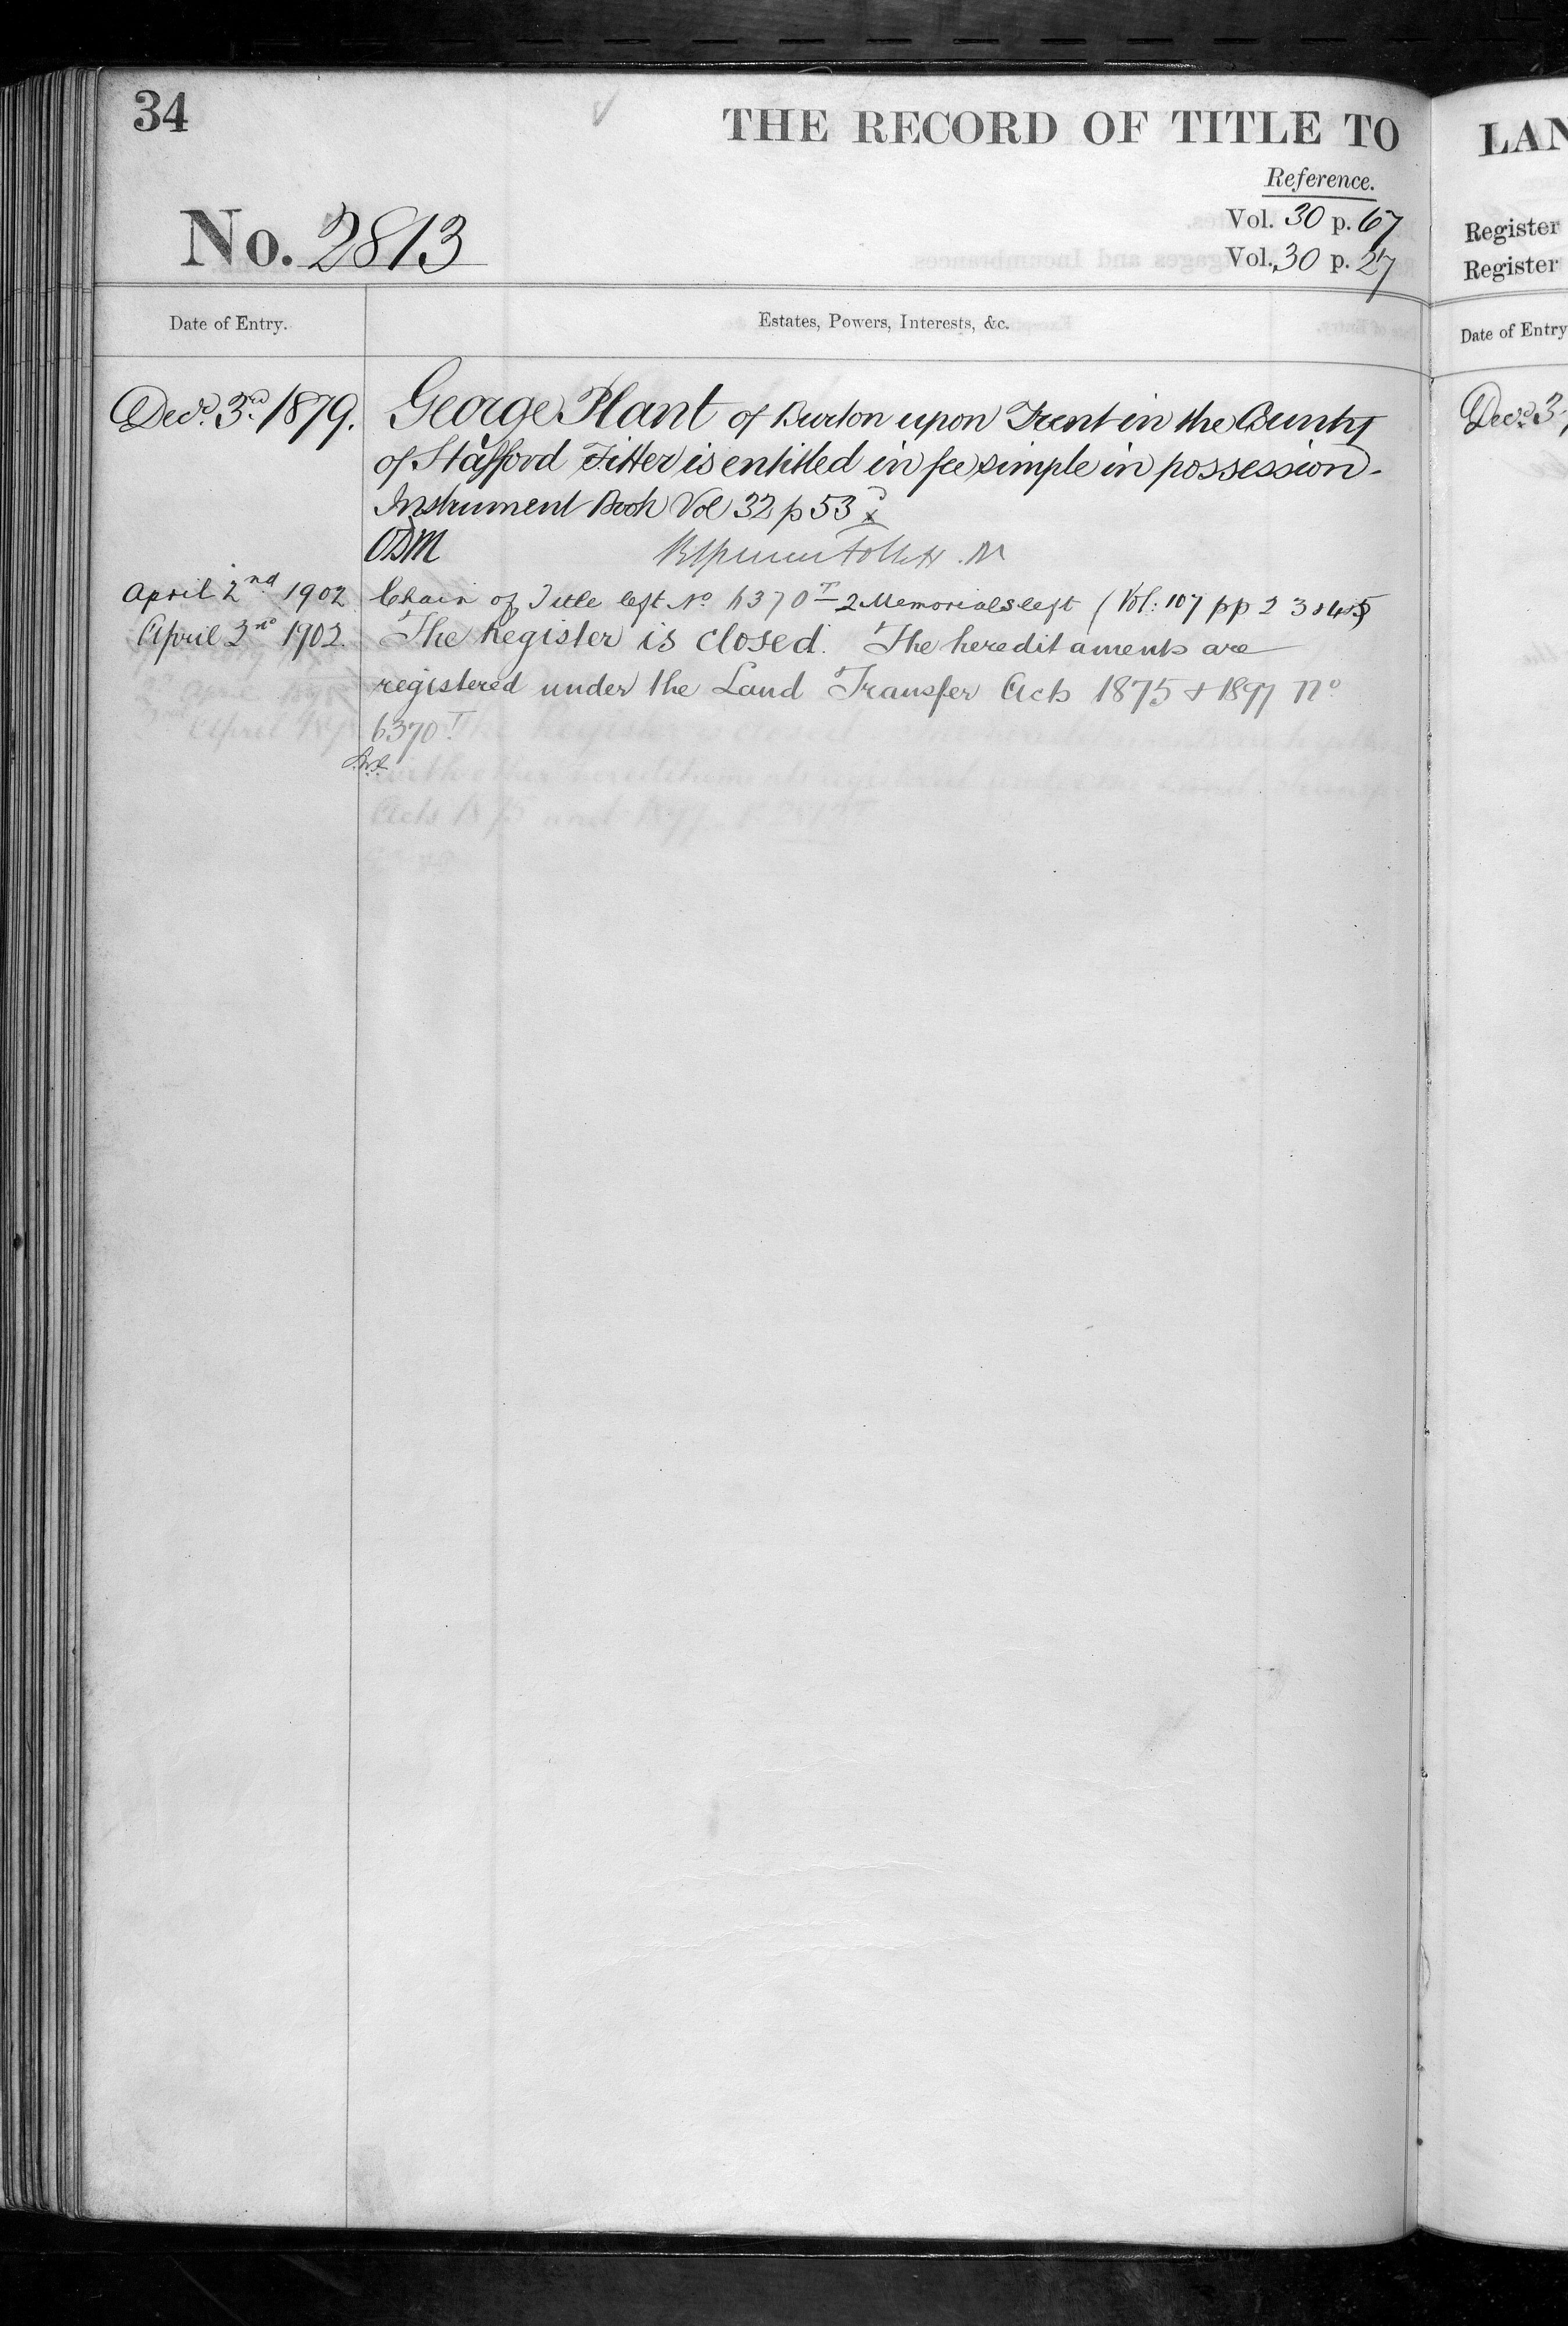 34
THE RECORD OF TITLE TO
LAN
Reference.
No. 2813
Vol. 30 p. 67
Vol. 30 p. 27
Register
Register
Date of Entry.
Estates, Powers, Interests, &c.
Date of Entry
Decr. 3rd 1879.
George Plant of Burton upon Trent in the County
of Stafford Fitter is entitled in fee simple in possession.
Instrument Book Vol 32 p 53
April 2nd 1902
Chain of Title left No 6370T 2 Memorials left (Vol: 107 pp 2 3 & 4 5
April 3rd 1902.
The Register is closed. The hereditaments are
registered under the Land Transfer Acts 1875 & 1897 No
6370 T
Decr. 3